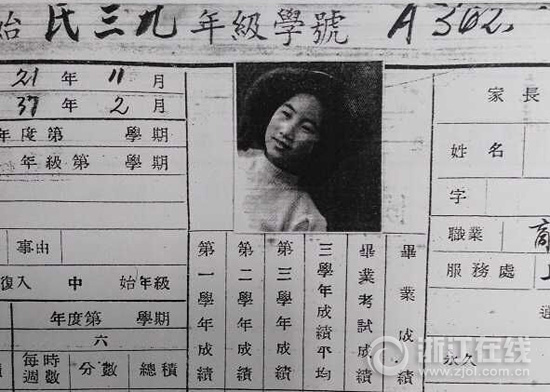 始 民三九 年級學號 A 362
21 年 11 月
37 年 2 月
年度第 學期
年級第 學期
事由
復入 中 始年級
年度第 學期
六
每週時數 分數 總積
第一學年成績
第二學年成績
第三學年成績
三學年成績平均
畢業考試成績
畢業成績
家長
姓名
字
職業 商
服務處
永久
浙江在线
www.zjol.com.cn